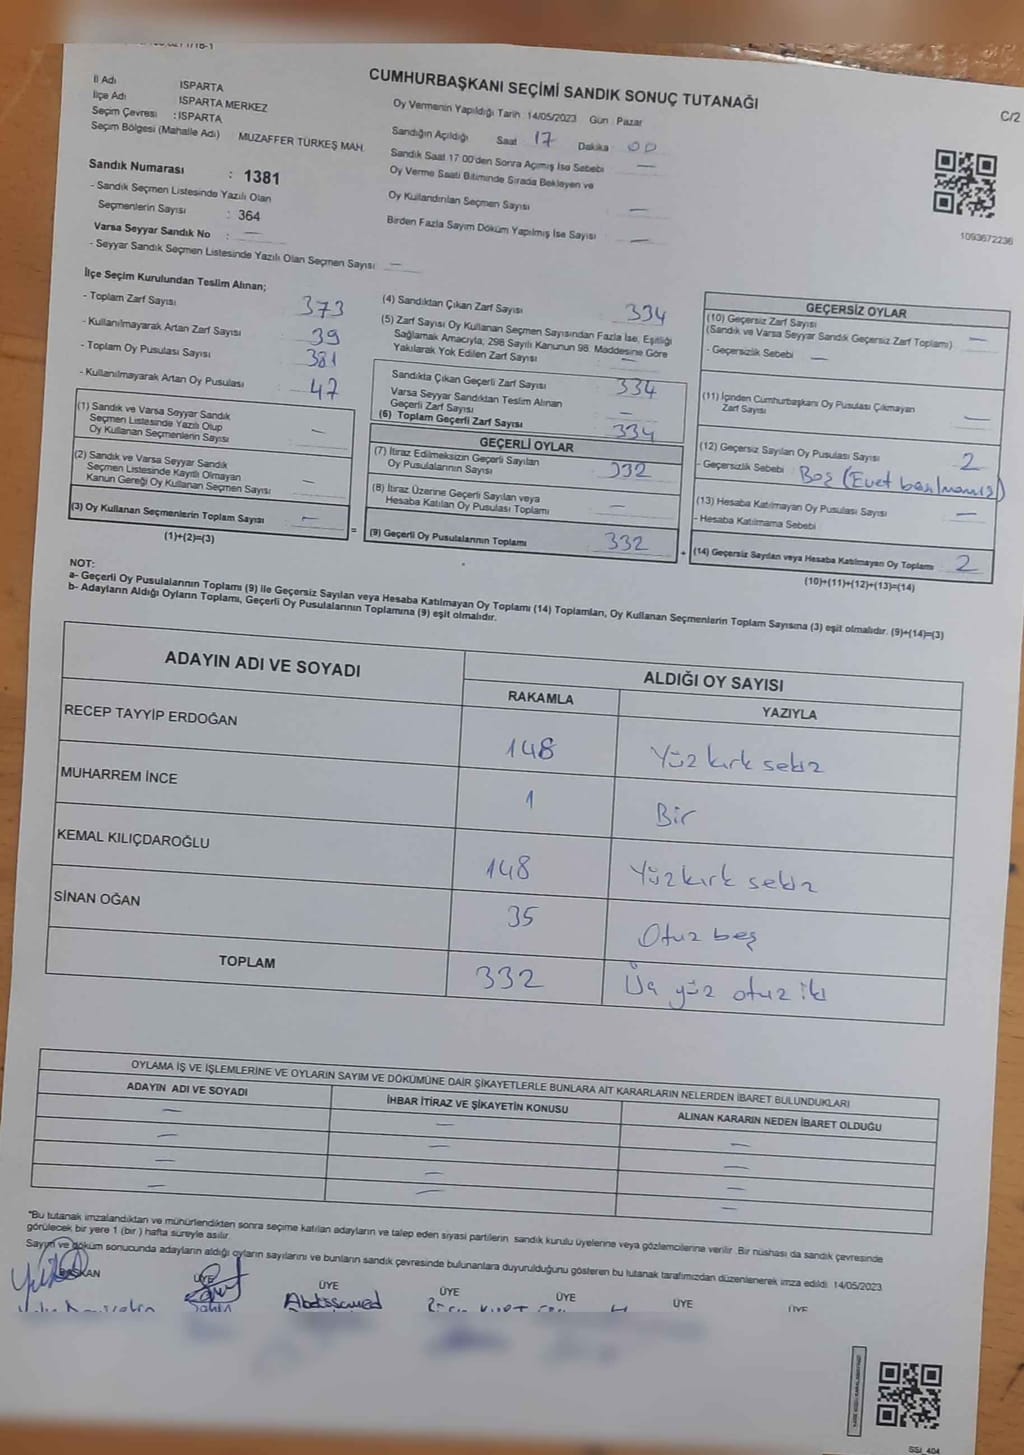 CUMHURBAŞKANI SEÇİMİ SANDIK SONUÇ TUTANAĞI
C/2
İl Adı ISPARTA
İlçe Adı ISPARTA MERKEZ
Seçim Çevresi : ISPARTA
Seçim Bölgesi (Mahalle Adı) : MUZAFFER TÜRKEŞ MAH.
Sandık Numarası : 1381
- Sandık Seçmen Listesinde Yazılı Olan
Seçmenlerin Sayısı : 364
Varsa Seyyar Sandık No : —
- Seyyar Sandık Seçmen Listesinde Yazılı Olan Seçmen Sayısı —
Oy Vermenin Yapıldığı Tarih 14/05/2023 Gün : Pazar
Sandığın Açıldığı Saat 17 Dakika : 00
Sandık Saat 17:00'den Sonra Açımış İse Sebebi —
Oy Verme Saati Bitiminde Sırada Bekleyen ve
Oy Kullandırılan Seçmen Sayısı : —
Birden Fazla Sayım Döküm Yapılmış İse Sayısı : —
1093672236
İlçe Seçim Kurulundan Teslim Alınan;
- Toplam Zarf Sayısı 373
- Kullanılmayarak Artan Zarf Sayısı 39
- Toplam Oy Pusulası Sayısı 381
- Kullanılmayarak Artan Oy Pusulası 47
(1) Sandık ve Varsa Seyyar Sandık
Seçmen Listesinde Yazılı Olup
Oy Kullanan Seçmenlerin Sayısı —
(2) Sandık ve Varsa Seyyar Sandık
Seçmen Listesinde Kayıtlı Olmayan
Kanun Gereği Oy Kullanan Seçmen Sayısı —
(3) Oy Kullanan Seçmenlerin Toplam Sayısı —
(1)+(2)=(3)
=
(4) Sandıktan Çıkan Zarf Sayısı 334
(5) Zarf Sayısı Oy Kullanan Seçmen Sayısından Fazla İse, Eşitliği
Sağlamak Amacıyla, 298 Sayılı Kanunun 98. Maddesine Göre
Yakılarak Yok Edilen Zarf Sayısı : —
Sandıkta Çıkan Geçerli Zarf Sayısı 334
Varsa Seyyar Sandıktan Teslim Alınan
Geçerli Zarf Sayısı —
(6) Toplam Geçerli Zarf Sayısı 334
GEÇERLİ OYLAR
(7) İtiraz Edilmeksizin Geçerli Sayılan
Oy Pusulalarının Sayısı 332
(8) İtiraz Üzerine Geçerli Sayılan veya
Hesaba Katılan Oy Pusulası Toplamı —
(9) Geçerli Oy Pusulalarının Toplamı 332
+
GEÇERSİZ OYLAR
(10) Geçersiz Zarf Sayısı
(Sandık ve Varsa Seyyar Sandık Geçersiz Zarf Toplamı) —
- Geçersizlik Sebebi —
(11) İçinden Cumhurbaşkanı Oy Pusulası Çıkmayan
Zarf Sayısı —
(12) Geçersiz Sayılan Oy Pusulası Sayısı 2
- Geçersizlik Sebebi : Boş (Evet basılmamış)
(13) Hesaba Katılmayan Oy Pusulası Sayısı —
- Hesaba Katılmama Sebebi
(14) Geçersiz Sayılan veya Hesaba Katılmayan Oy Toplamı 2
(10)+(11)+(12)+(13)=(14)
NOT:
a- Geçerli Oy Pusulalarının Toplamı (9) ile Geçersiz Sayılan veya Hesaba Katılmayan Oy Toplamı (14) Toplamları, Oy Kullanan Seçmenlerin Toplam Sayısına (3) eşit olmalıdır. (9)+(14)=(3)
b- Adayların Aldığı Oyların Toplamı, Geçerli Oy Pusulalarının Toplamına (9) eşit olmalıdır.
ADAYIN ADI VE SOYADI
ALDIĞI OY SAYISI
RAKAMLA YAZIYLA
RECEP TAYYİP ERDOĞAN 148 Yüz kırk sekiz
MUHARREM İNCE 1 Bir
KEMAL KILIÇDAROĞLU 148 Yüz kırk sekiz
SİNAN OĞAN 35 Otuz beş
TOPLAM 332 Üç yüz otuz iki
OYLAMA İŞ VE İŞLEMLERİNE VE OYLARIN SAYIM VE DÖKÜMÜNE DAİR ŞİKAYETLERLE BUNLARA AİT KARARLARIN NELERDEN İBARET BULUNDUKLARI
ADAYIN ADI VE SOYADI İHBAR İTİRAZ VE ŞİKAYETİN KONUSU ALINAN KARARIN NEDEN İBARET OLDUĞU
— — —
— — —
— — —
— — —
"Bu tutanak imzalandıktan ve mühürlendikten sonra seçime katılan adayların ve talep eden siyasi partilerin sandık kurulu üyelerine veya gözlemcilerine verilir. Bir nüshası da sandık çevresinde
görülecek bir yere 1 (bir) hafta süreyle asılır.
Sayım ve döküm sonucunda adayların aldığı oyların sayılarını ve bunların sandık çevresinde bulunanlara duyurulduğunu gösteren bu tutanak tarafımızdan düzenlenerek imza edildi. 14/05/2023
BAŞKAN ÜYE ÜYE ÜYE ÜYE ÜYE ÜYE
Şahin Abdüssamed
SSİ_404